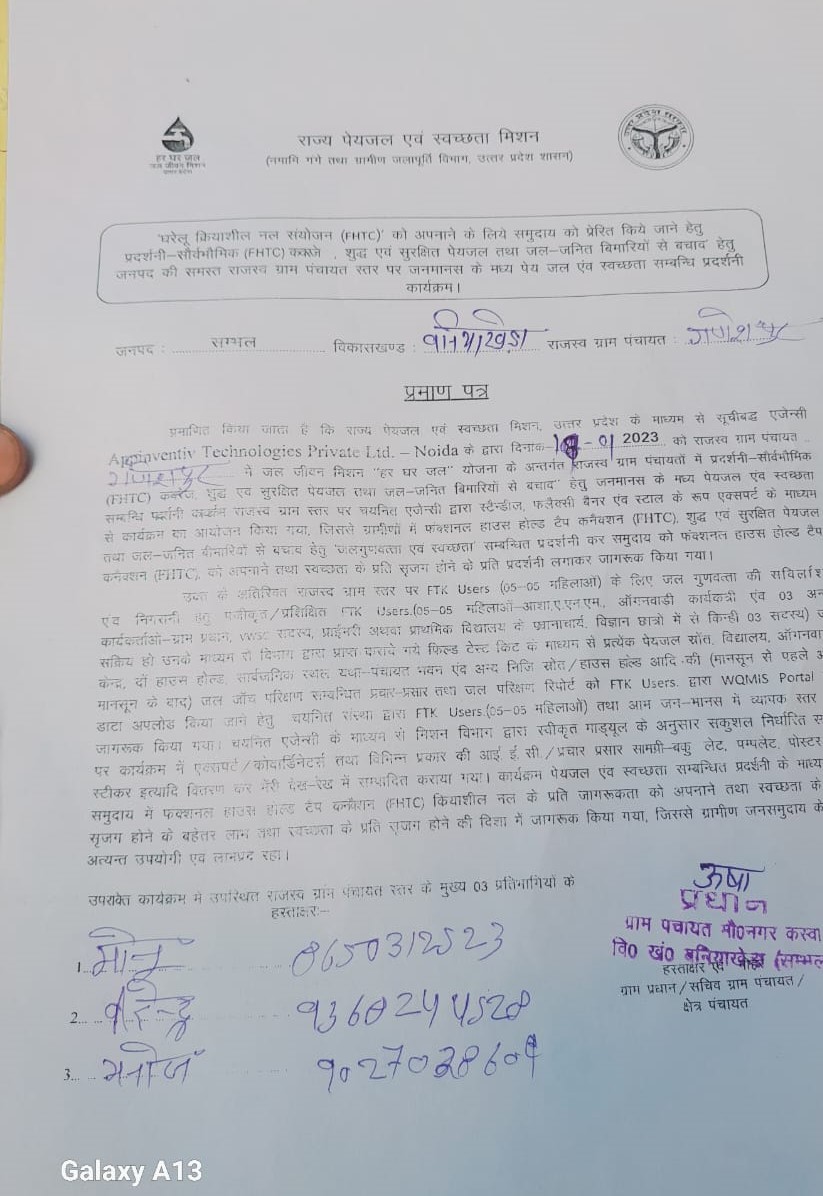 हर घर जल
जल जीवन मिशन
उत्तर प्रदेश
राज्य पेयजल एवं स्वच्छता मिशन
(नमामि गंगे तथा ग्रामीण जलापूर्ति विभाग, उत्तर प्रदेश शासन)
'घरेलू क्रियाशील नल संयोजन (FHTC)' को अपनाने के लिये समुदाय को प्रेरित किये जाने हेतु
प्रदर्शनी–सौर्वभौमिक (FHTC) कवरेज , शुद्ध एवं सुरक्षित पेयजल तथा जल–जनित बिमारियों से बचाव' हेतु
जनपद की समस्त राजस्व ग्राम पंचायत स्तर पर जनमानस के मध्य पेय जल एंव स्वच्छता सम्बन्धि प्रदर्शनी
कार्यक्रम।
जनपद : सम्भल विकासखण्ड : बनियाखेड़ा राजस्व ग्राम पंचायत : गणेशपुर
प्रमाण पत्र
प्रमाणित किया जाता है कि राज्य पेयजल एवं स्वच्छता मिशन, उत्तर प्रदेश के माध्यम से सूचीबद्ध एजेन्सी
Appinventiv Technologies Private Ltd. – Noida के द्वारा दिनांक- 01 2023 को राजस्व ग्राम पंचायत
गणेशपुर ने जल जीवन मिशन "हर घर जल" योजना के अन्तर्गत राजस्व ग्राम पंचायतों में प्रदर्शनी–सौर्वभौमिक
(FHTC) कवरेज, शुद्ध एवं सुरक्षित पेयजल तथा जल–जनित बिमारियों से बचाव' हेतु जनमानस के मध्य पेयजल एंव स्वच्छता
सम्बन्धि प्रदर्शनी कार्यक्रम राजस्व ग्राम स्तर पर चयनित एजेन्सी द्वारा स्टैन्डीज, फलैक्सी बैनर एंव स्टाल के रूप एक्सपर्ट के माध्यम
से कार्यक्रम का आयोजन किया गया, जिससे ग्रामीणों में फंक्शनल हाउस होल्ड टैप कनैक्शन (FHTC), शुद्ध एवं सुरक्षित पेयजल
तथा जल–जनित बीमारियों से बचाव हेतु 'जलगुणवत्ता एवं स्वच्छता' सम्बन्धित प्रदर्शनी कर समुदाय को फंक्शनल हाउस होल्ड टैप
कनैक्शन (FHTC), को अपनाने तथा स्वच्छता के प्रति सृजग होने के प्रति प्रदर्शनी लगाकर जागरूक किया गया।
उक्त के अतिरिक्त राजस्व ग्राम स्तर पर FTK Users (05-05 महिलाओं) के लिए जल गुणवत्ता की
एंव निगरानी हेतु पंजीकृत/प्रशिक्षित FTK Users.(05-05 महिलाओं–आशा,ए.एन.एम., ऑगनवाडी कार्यकत्री एंव 03
कार्यकर्ताओं–ग्राम प्रधान, VWSC सदस्य, प्राईमरी अथवा प्राथमिक विद्यालय के प्रधानाचार्य, विज्ञान छात्रो में से किन्ही 03 सदस्य)
सक्रिय हो उनके माध्यम से विभाग द्वारा प्राप्त कराये गये फिल्ड टेस्ट किट के माध्यम से प्रत्येक पेयजल स्रोत, विद्यालय,
केन्द्र, दो हाउस होल्ड, सार्वजनिक स्थल यथा–पंचायत भवन एंव अन्य निजि स्रोत/हाउस हॉल्ड आदि की (मानसून से पहले
मानसून के बाद) जल जॉच परिक्षण सम्बन्धित प्रचार–प्रसार तथा जल परिक्षण रिपोर्ट को FTK Users. द्वारा WQMIS Portal
डाटा अपलोड किया जाने हेतु चयनित संस्था द्वारा FTK Users.(05-05 महिलाओं) तथा आम जन–मानस में व्यापक स्तर
जागरूक किया गया। चयनित एजेन्सी के माध्यम से मिशन विभाग द्वारा स्वीकृत माड्यूल के अनुसार सकुशल निर्धारित
पर कार्यक्रम में एक्सपर्ट/कोर्डिनेटर्स तथा विभिन्न प्रकार की आई.ई.सी./प्रचार प्रसार सामग्री–बकु लेट, पम्पलेट, पोस्टर
स्टीकर इत्यादि वितरण कर मेरी देख–रेख में सम्पादित कराया गया। कार्यक्रम पेयजल एंव स्वच्छता सम्बन्धित प्रदर्शनी के
समुदाय में फंक्शनल हाउस हॉल्ड टैप कनैक्शन (FHTC) कियाशील नल के प्रति जागरूकता को अपनाने तथा स्वच्छता के
सृजग होने के बहेतर लाभ तथा स्वच्छता के प्रति सृजग होने की दिशा में जागरूक किया गया, जिससे ग्रामीण जनसमुदाय के
अत्यन्त उपयोगी एवं लाभप्रद रहा।
उपरोक्त कार्यक्रम मे उपस्थित राजस्व ग्रांम पंचायत स्तर के मुख्य 03 प्रतिभागियों के
हस्ताक्षरः–
ऊषा
प्रधान
ग्राम पंचायत मौ0नगर कस्वा
वि0 खं0 बनियाखेड़ा (सम्भल
हस्ताक्षर एवं मोहर
ग्राम प्रधान/सचिव ग्राम पंचायत/
क्षेत्र पंचायत
1. मोनू 8650312523
2. वीरेन्द्र 9368244528
3. मनोज
Galaxy A13